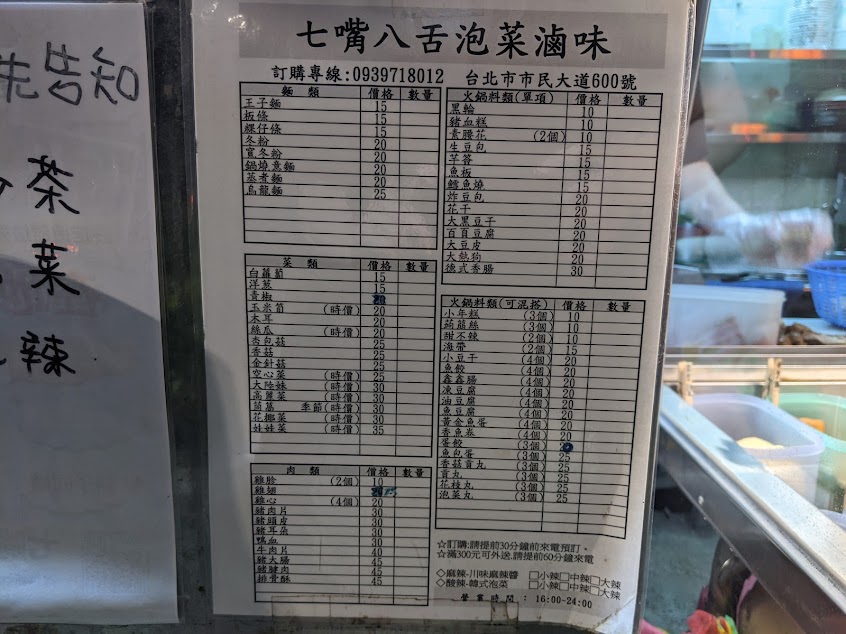 先告知
茶
菜
辣
七嘴八舌泡菜滷味
訂購專線:0939718012 台北市市民大道600號
麵 類 價格 數量
王子麵 15
板條 15
粿仔條 15
冬粉 20
寬冬粉 20
鍋燒意麵 20
蒸煮麵 20
烏龍麵 25
菜 類 價格 數量
白蘿蔔 15
洋蔥 15
青椒
玉米筍 (時價) 20
木耳 20
絲瓜 (時價) 20
杏包菇 25
香菇 25
金針菇 25
空心菜 (時價) 25
大陸妹 (時價) 30
高麗菜 (時價) 30
茼蒿 季節(時價) 30
花椰菜 (時價) 30
娃娃菜 (時價) 35
肉 類 價格 數量
雞胗 (2個) 10
雞翅
雞心 (4個) 20
豬肉片 30
豬頭皮 30
豬耳朵 30
鴨血 30
牛肉片 40
豬大腸 45
豬腱肉 45
排骨酥 45
火鍋料類(單項) 價格 數量
黑輪 10
豬血糕 10
素腰花 (2個) 10
生豆包 15
芋簽 15
魚板 15
鱈魚燒 15
炸豆包 20
花干 20
大黑豆干 20
百頁豆腐 20
大豆皮 20
大熱狗 20
德式香腸 30
火鍋料類(可混搭) 價格 數量
小年糕 (3個) 10
蒟蒻絲 (3個) 10
甜不辣 (2個) 10
海帶 (2個) 15
小豆干 (4個) 20
魚餃 (4個) 20
鑫鑫腸 (4個) 20
凍豆腐 (4個) 20
油豆腐 (4個) 20
魚豆腐 (4個) 20
黃金魚蛋 (4個) 20
香魚羔 (4個) 20
蛋餃 (3個)
魚包蛋 (3個) 25
香菇貢丸 (3個) 25
貢丸 (3個) 25
花枝丸 (3個) 25
泡菜丸 (3個) 25
☆訂購:請提前30分鐘前來電預訂.
☆滿300元可外送,請提前60分鐘來電
◇麻辣-川味麻辣醬 □小辣□中辣□大辣
◇酸辣-韓式泡菜 □小辣□中辣□大辣
營業時間: 16:00-24:00